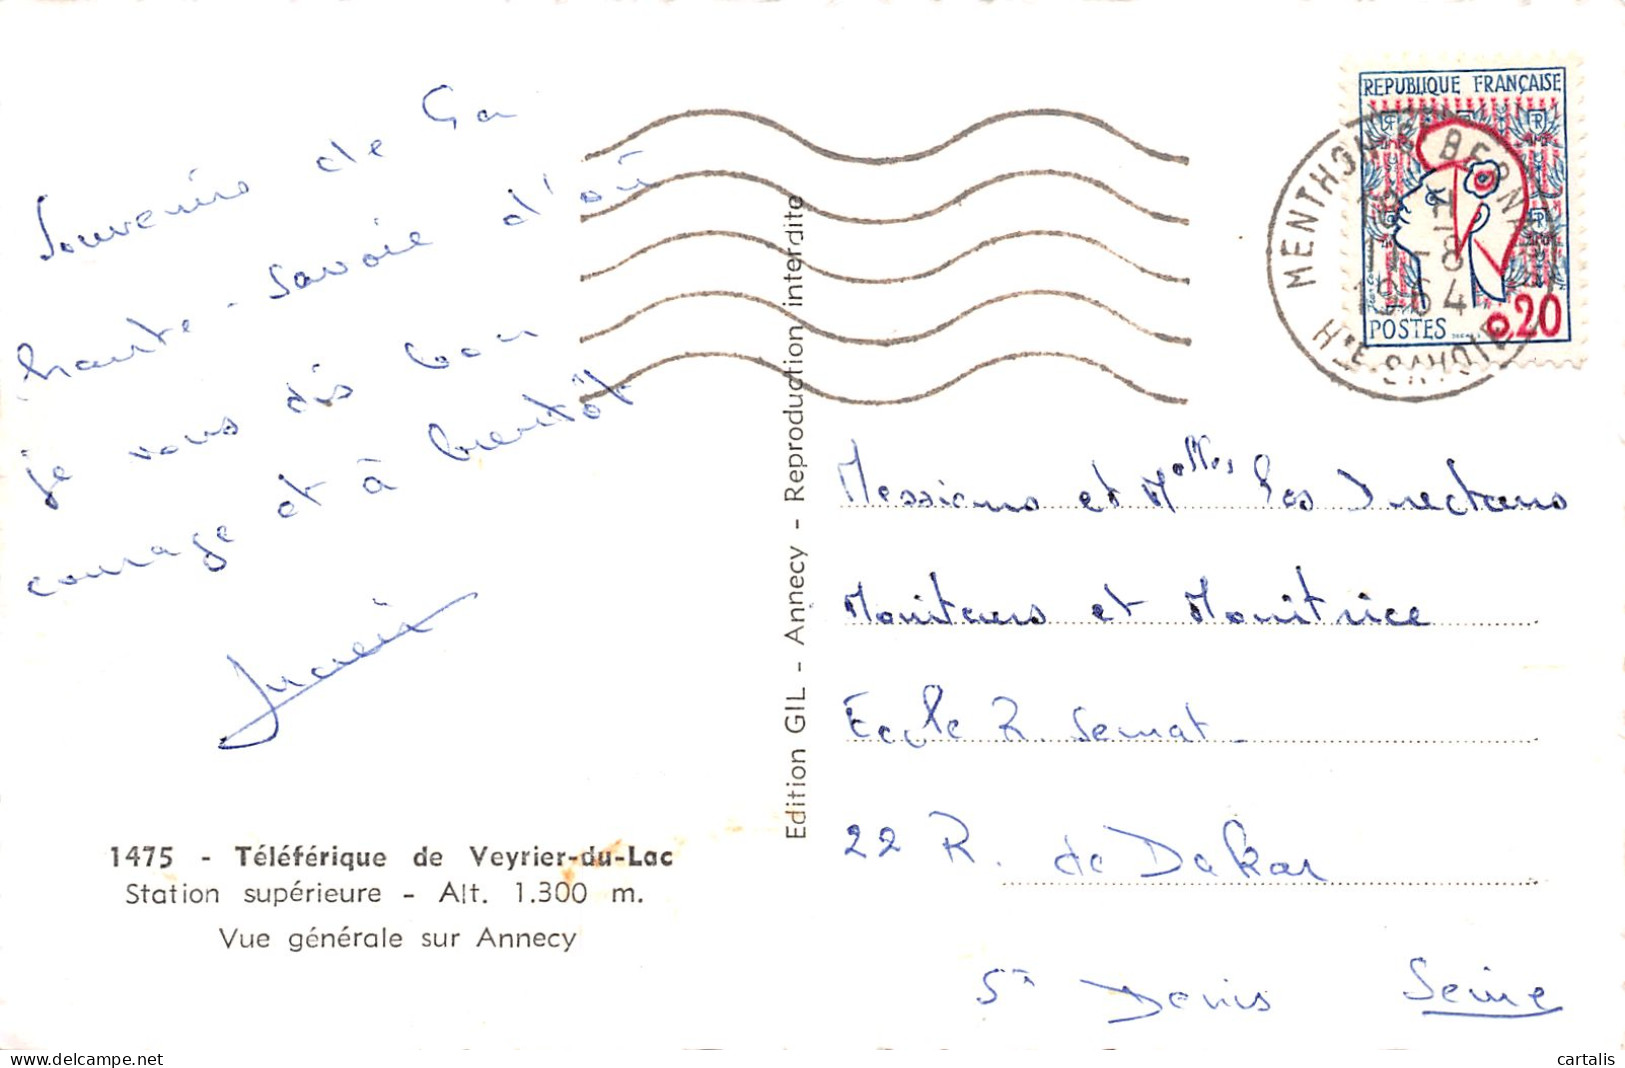 Souvenirs de la
haute-Savoie d'où
je vous dis bon
courage et à bientôt
1475 - Téléférique de Veyrier-du-Lac
Station supérieure - Alt. 1.300 m.
Vue générale sur Annecy
Edition GIL - Annecy - Reproduction interdite
REPUBLIQUE FRANÇAISE
POSTES 0.20
MENTHON-S-BERNARD
18 H
11 - 8
1964
HTE SAVOIE
Messieurs et Melles les Directeurs
Moniteurs et Monitrice
Ecole R. Semat
22 R. de Dakar
St Denis Seine
cartalis